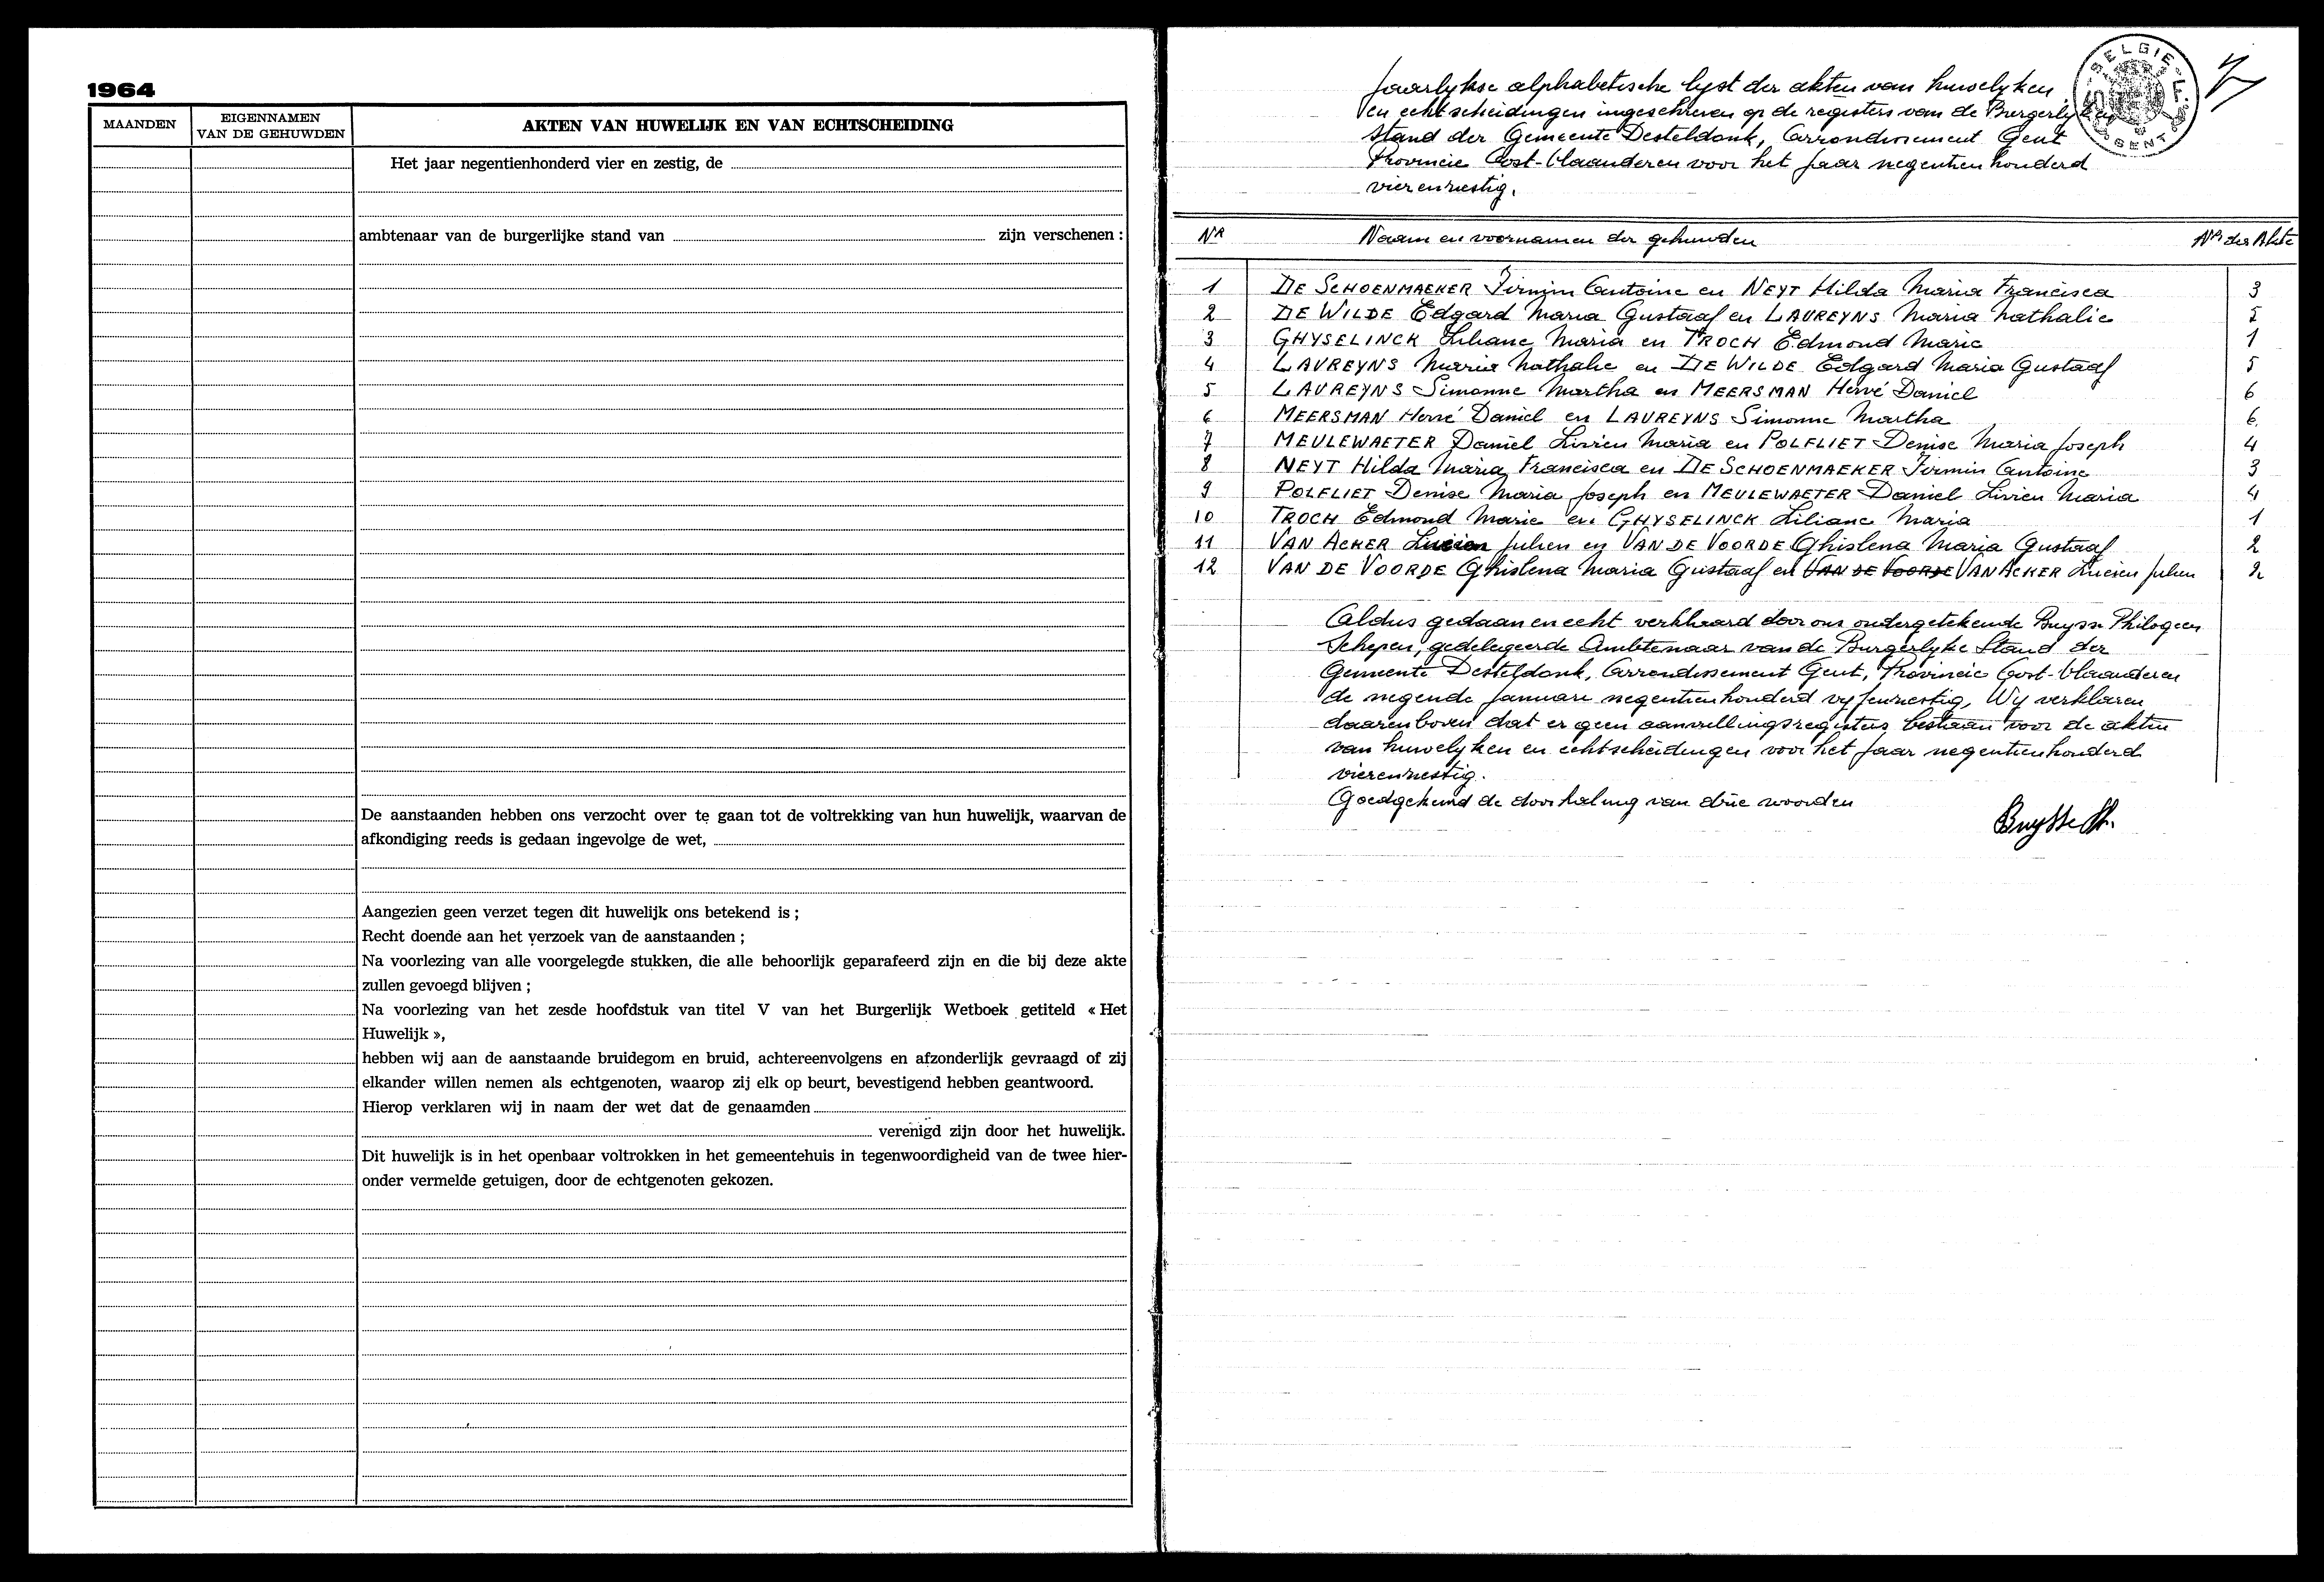 1964
MAANDEN
EIGENNAMEN
VAN DE GEHUWDEN
AKTEN VAN HUWELIJK EN VAN ECHTSCHEIDING
Het jaar negentienhonderd vier en zestig, de
ambtenaar van de burgerlijke stand van zijn verschenen :
De aanstaanden hebben ons verzocht over te gaan tot de voltrekking van hun huwelijk, waarvan de
afkondiging reeds is gedaan ingevolge de wet,
Aangezien geen verzet tegen dit huwelijk ons betekend is ;
Recht doende aan het verzoek van de aanstaanden ;
Na voorlezing van alle voorgelegde stukken, die alle behoorlijk geparafeerd zijn en die bij deze akte
zullen gevoegd blijven ;
Na voorlezing van het zesde hoofdstuk van titel V van het Burgerlijk Wetboek getiteld « Het
Huwelijk »,
hebben wij aan de aanstaande bruidegom en bruid, achtereenvolgens en afzonderlijk gevraagd of zij
elkander willen nemen als echtgenoten, waarop zij elk op beurt, bevestigend hebben geantwoord.
Hierop verklaren wij in naam der wet dat de genaamden
verenigd zijn door het huwelijk.
Dit huwelijk is in het openbaar voltrokken in het gemeentehuis in tegenwoordigheid van de twee hier-
onder vermelde getuigen, door de echtgenoten gekozen.
Jaarlykse alphabetische lyst der akten van huwelyken
en echtscheidingen ingeschreven op de registers van de Burgerlyken
Stand der Gemeente Desteldonk, Arrondissement Gent
Provincie Oost-Vlaanderen voor het jaar negentienhonderd
vierenzestig.
BELGIE
GENT
NR Naam en voornamen der gehuwden NR der Akte
1 DE SCHOENMAEKER Firmin Antoine en NEYT Hilda Maria Francisca 3
2 DE WILDE Edgard Maria Gustaaf en LAUREYNS Maria Nathalie 5
3 GHYSELINCK Liliane Maria en TROCH Edmond Marie 1
4 LAUREYNS Maria Nathalie en DE WILDE Edgard Maria Gustaaf 5
5 LAUREYNS Simonne Martha en MEERSMAN Hervé Daniel 6
6 MEERSMAN Hervé Daniel en LAUREYNS Simonne Martha 6
7 MEULEWAETER Daniel Livien Maria en POLFLIET Denise Maria Joseph 4
8 NEYT Hilda Maria Francisca en DE SCHOENMAEKER Firmin Antoine 3
9 POLFLIET Denise Maria Joseph en MEULEWAETER Daniel Livien Maria 4
10 TROCH Edmond Marie en GHYSELINCK Liliane Maria 1
11 VAN ACKER Lucien Julien en VAN DE VOORDE Ghislena Maria Gustaaf 2
12 VAN DE VOORDE Ghislena Maria Gustaaf en VAN DE VOORDE VAN ACKER Lucien Julien 2
Aldus gedaan en echt verklaard door ons ondergetekende Buysse Philogeen
Schepen, gedelegeerde Ambtenaar van de Burgerlyke Stand der
Gemeente Desteldonk, Arrondissement Gent, Provincie Oost-Vlaanderen
de negende Januari negentienhonderd vyfenzestig, Wy verklaren
daarenboven dat er geen aanvullingsregisters bestaan voor de akten
van huwelyken en echtscheidingen voor het jaar negentienhonderd
vierenzestig.
Goedgekeurd de doorhaling van drie woorden
Buysse Ph.